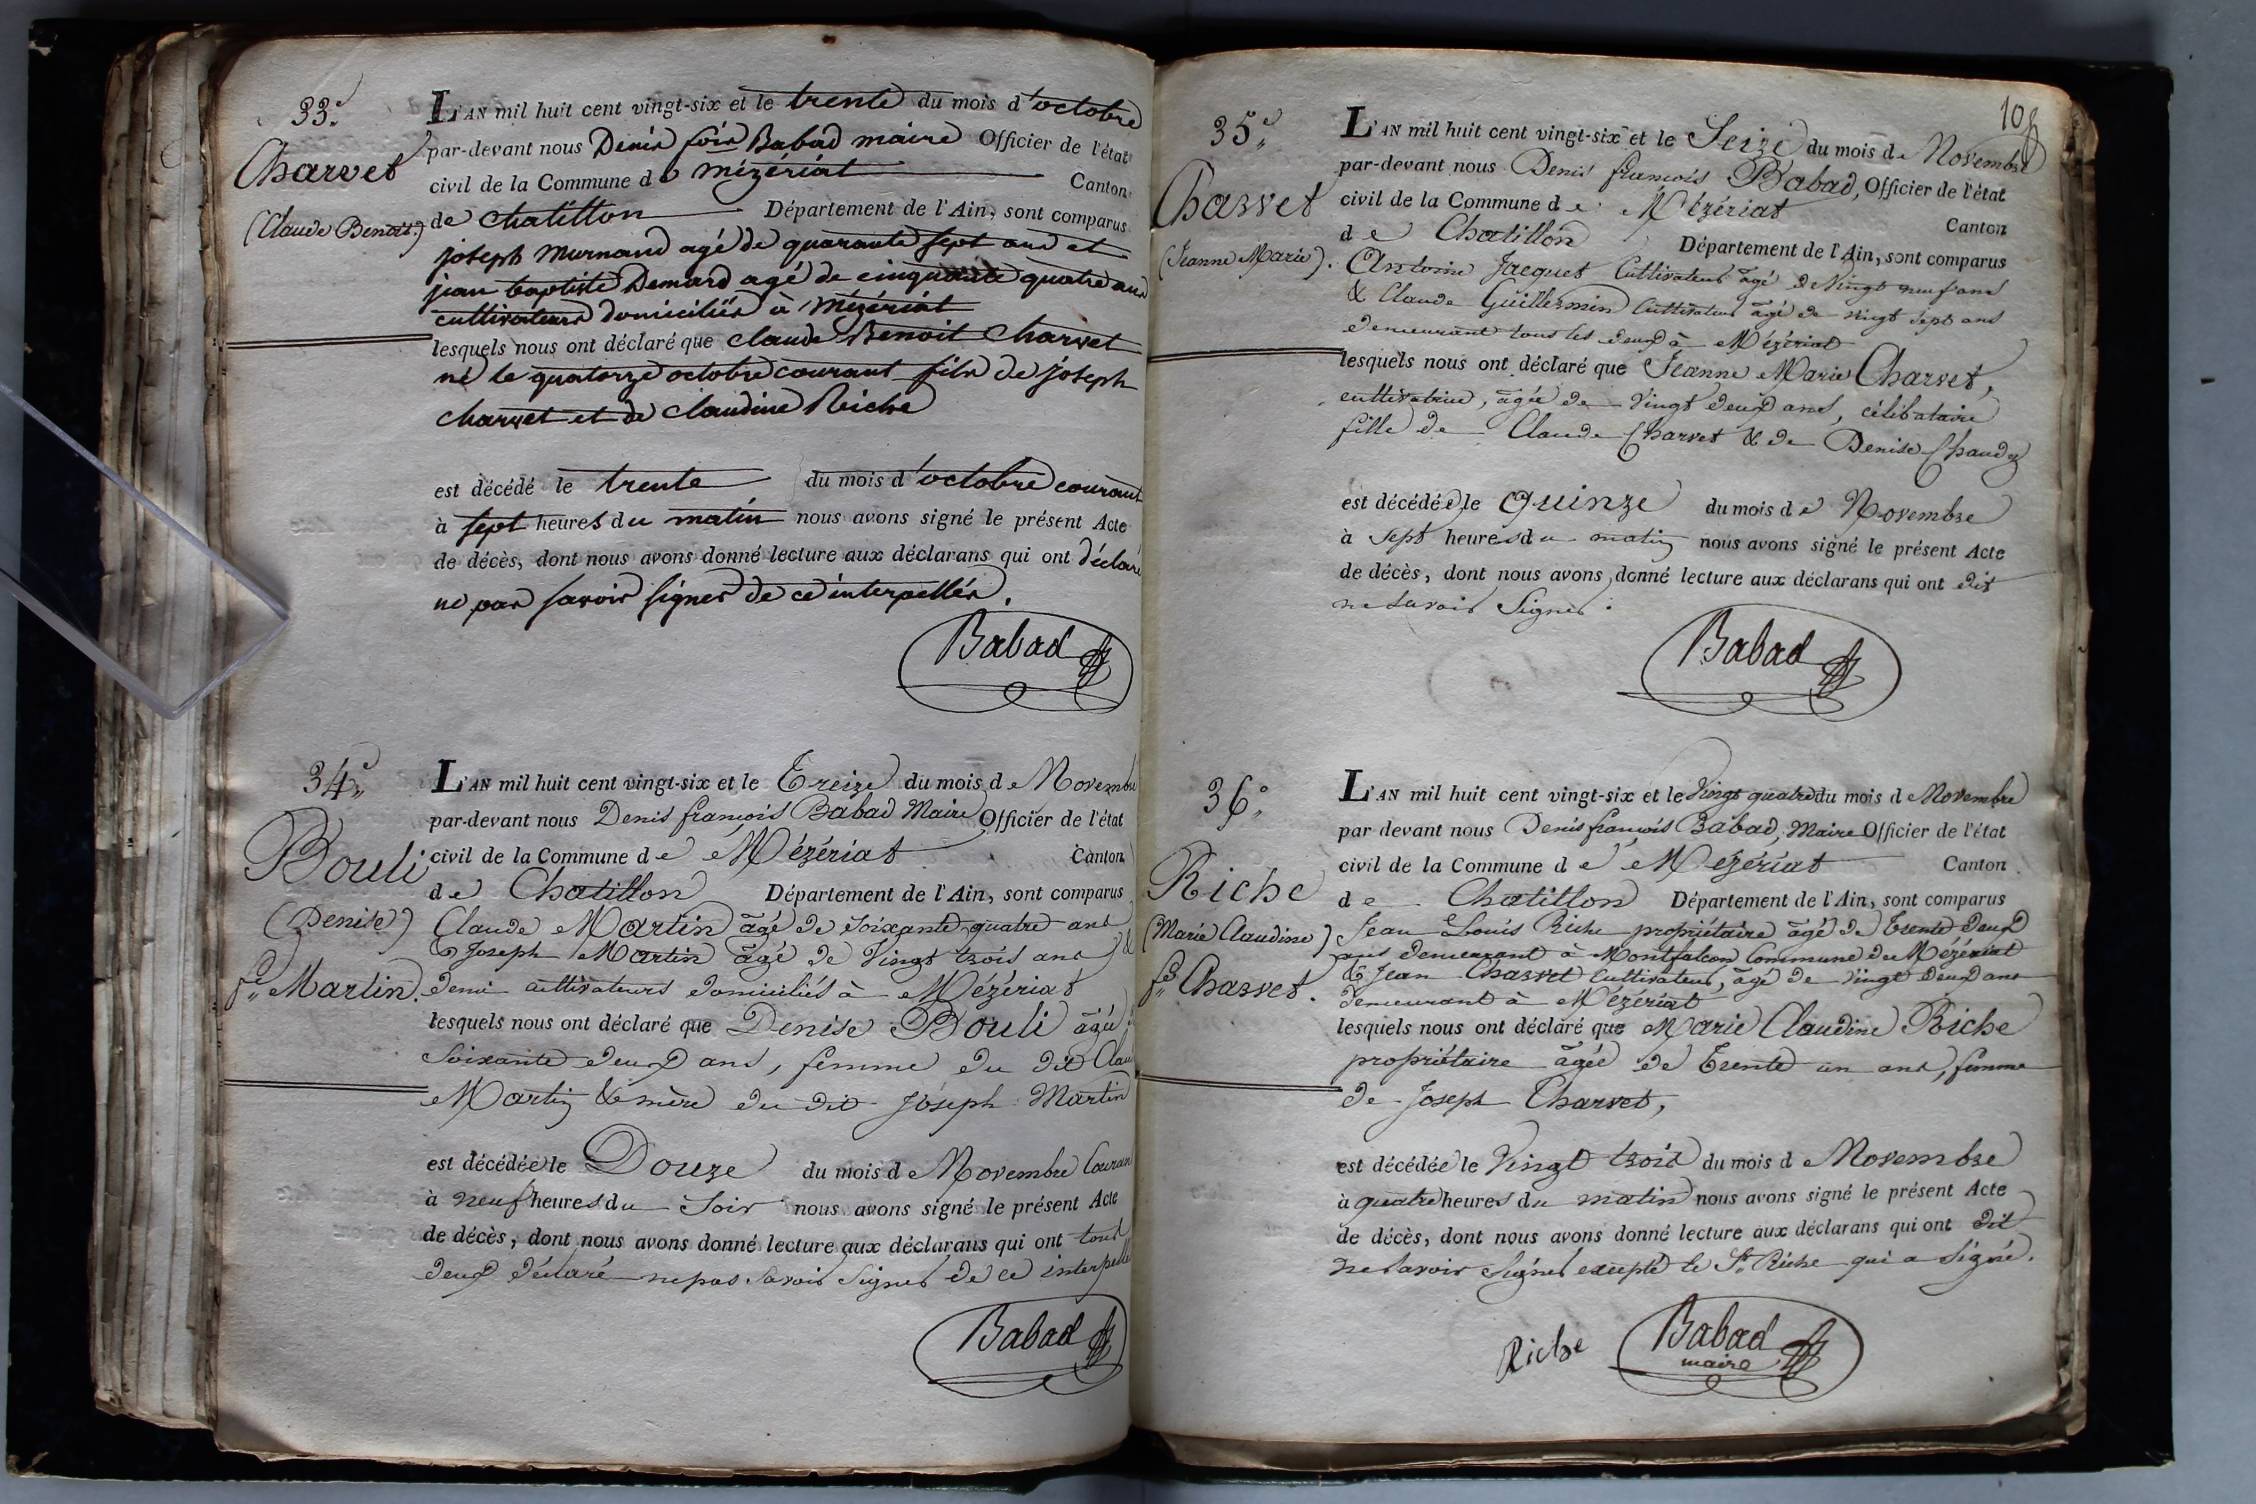 33e
Charvet
(Claude Benoit.)
L'AN mil huit cent vingt-six et le trente du mois d'octobre
par-devant nous Denis fois Babad maire Officier de l'état
civil de la Commune de mézériat Canton
de chatillon Département de l'Ain, sont comparus
joseph Murnand agé de quarante sept ans et
jean baptiste Demard agé de cinquante quatre ans
cultivateurs domiciliés à Mézériat
lesquels nous ont déclaré que claude Benoit Charvet
né le quatorze octobre courant fils de joseph
charvet et de claudine Riche
est décédé le trente du mois d'octobre courant
à sept heures du matin nous avons signé le présent Acte
de décès, dont nous avons donné lecture aux déclarans qui ont déclaré
ne pas savoir signer de ce interpellés.
Babad
34e
Bouli
(Denise)
fe Martin.
L'AN mil huit cent vingt-six et le Treize du mois de Novembre
par-devant nous Denis francois Babad Maire Officier de l'état
civil de la Commune de Mézériat Canton
de Chatillon Département de l'Ain, sont comparus
Claude Martin âgé de soixante quatre ans
& Joseph Martin âgé de Vingt trois ans
cultivateurs domiciliés à Mézériat
lesquels nous ont déclaré que Denise Bouli âgée
soixante deux ans, femme du dit Clau
Martin & mère du dit Joseph Martin
est décédée le Douze du mois de Novembre Couran
à neuf heures du soir nous avons signé le présent Acte
de décès, dont nous avons donné lecture aux déclarans qui ont tous
deux déclaré ne pas savoir signer de ce interpellé
Babad
108
35e
Charvet
(Jeanne Marie).
L'AN mil huit cent vingt-six et le Seize du mois de Novembre
par-devant nous Denis francois Babad, Officier de l'état
civil de la Commune de Mézériat
Canton
de Chatillon Département de l'Ain, sont comparus
Antoine Jacquet Cultivateur âgé de Vingt neuf ans
& Claude Guillermin Cultivateur âgé de vingt sept ans
demeurant tous les deux à Mézériat
lesquels nous ont déclaré que Jeanne Marie Charvet,
cultivatrice, âgée de vingt deux ans, célibataire
fille de Claude Charvet & de Denise Chaudy
est décédée le quinze du mois de Novembre
à sept heures du matin nous avons signé le présent Acte
de décès, dont nous avons donné lecture aux déclarans qui ont dit
ne savoir Signer.
Babad
36e
Riche
(Marie Claudine)
fe Charvet.
L'AN mil huit cent vingt-six et le Vingt quatre du mois de Novembre
par devant nous Denis francois Babad, Maire Officier de l'état
civil de la Commune de Mézériat Canton
de Chatillon Département de l'Ain, sont comparus
Jean Louis Riche propriétaire âgé de Trente deux
ans demeurant à Montfalcon Commune de Mézériat
& Jean Charvet Cultivateur, âgé de vingt deux ans
demeurant à Mézériat
lesquels nous ont déclaré que Marie Claudine Riche
propriétaire âgée de Trente un ans, femme
de Joseph Charvet,
est décédée le Vingt trois du mois de Novembre
à quatre heures du matin nous avons signé le présent Acte
de décès, dont nous avons donné lecture aux déclarans qui ont dit
ne savoir Signer excepté le Sr. Riche qui a Signé.
Riche
Babad
maire